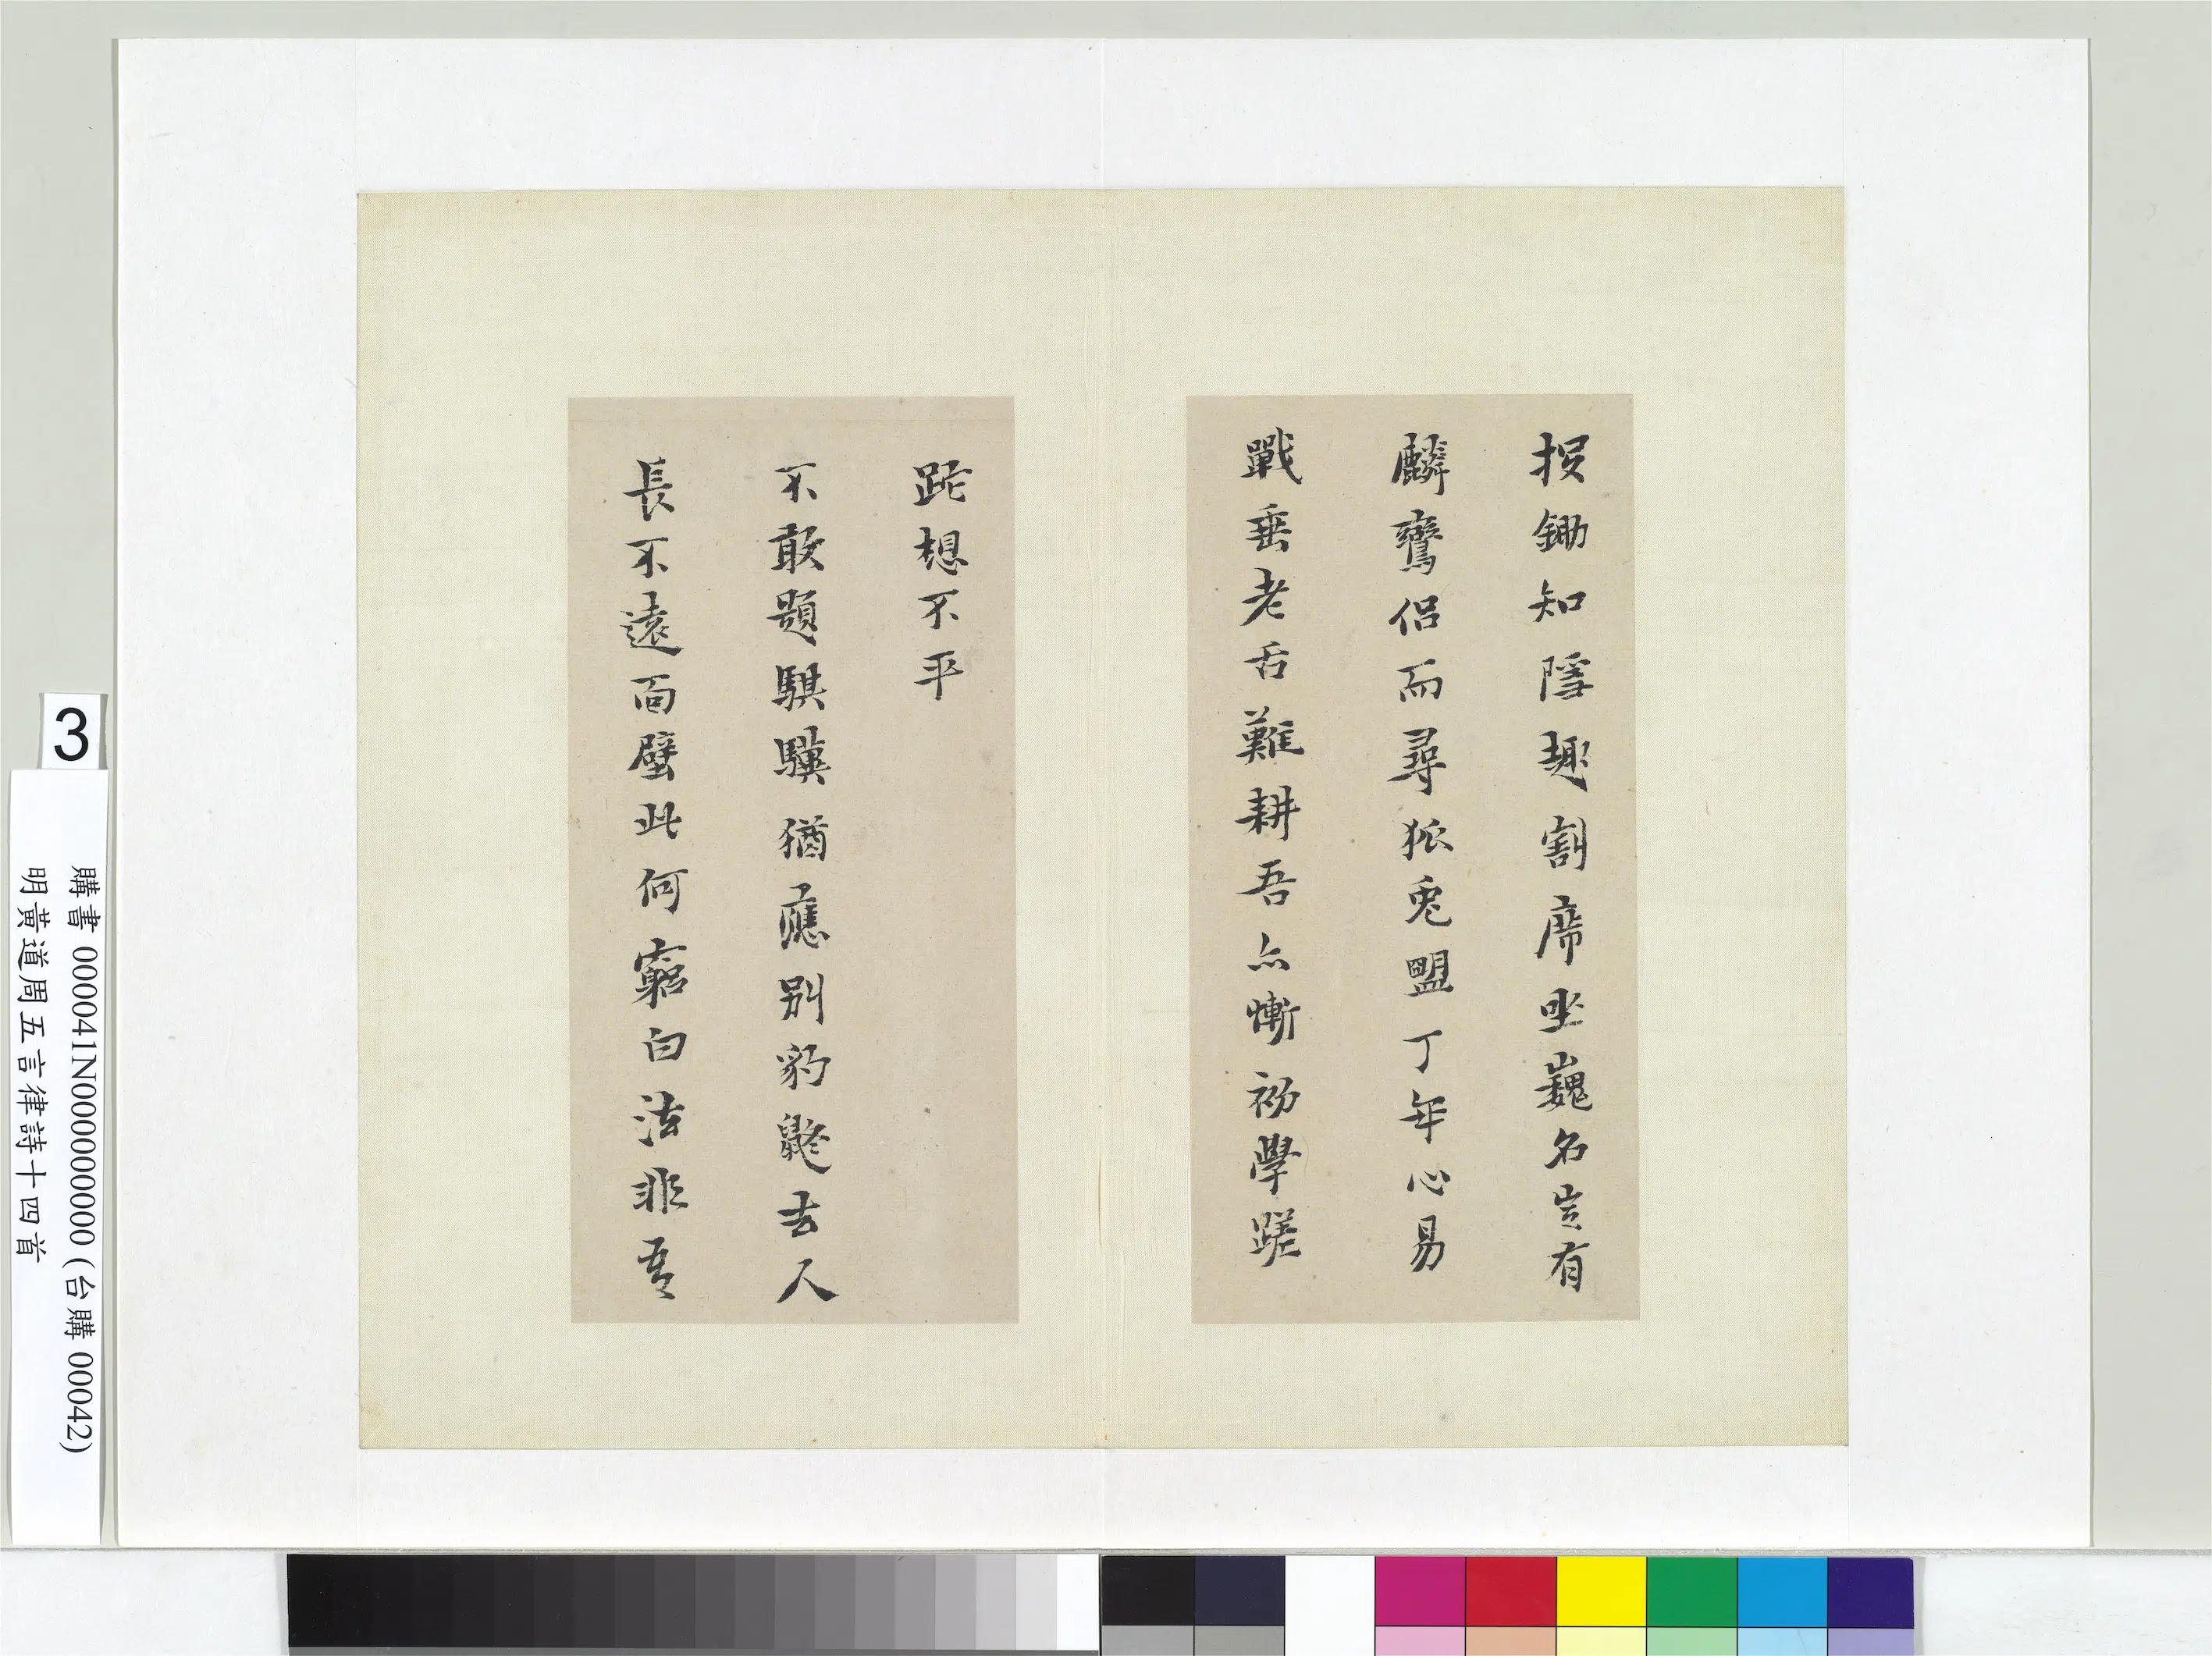 投鋤知隱趣割席坐巍名豈有
麟鸞侶而尋狐兔盟丁年心易
戰垂老舌難耕吾亦慚初學蹉
跎想不平
不敢題騏驥猶應別豹鼨去人
長不遠面壁此何窮白法非吾
3
購書 000041N000000000 (台購 00042)
明黃道周五言律詩十四首